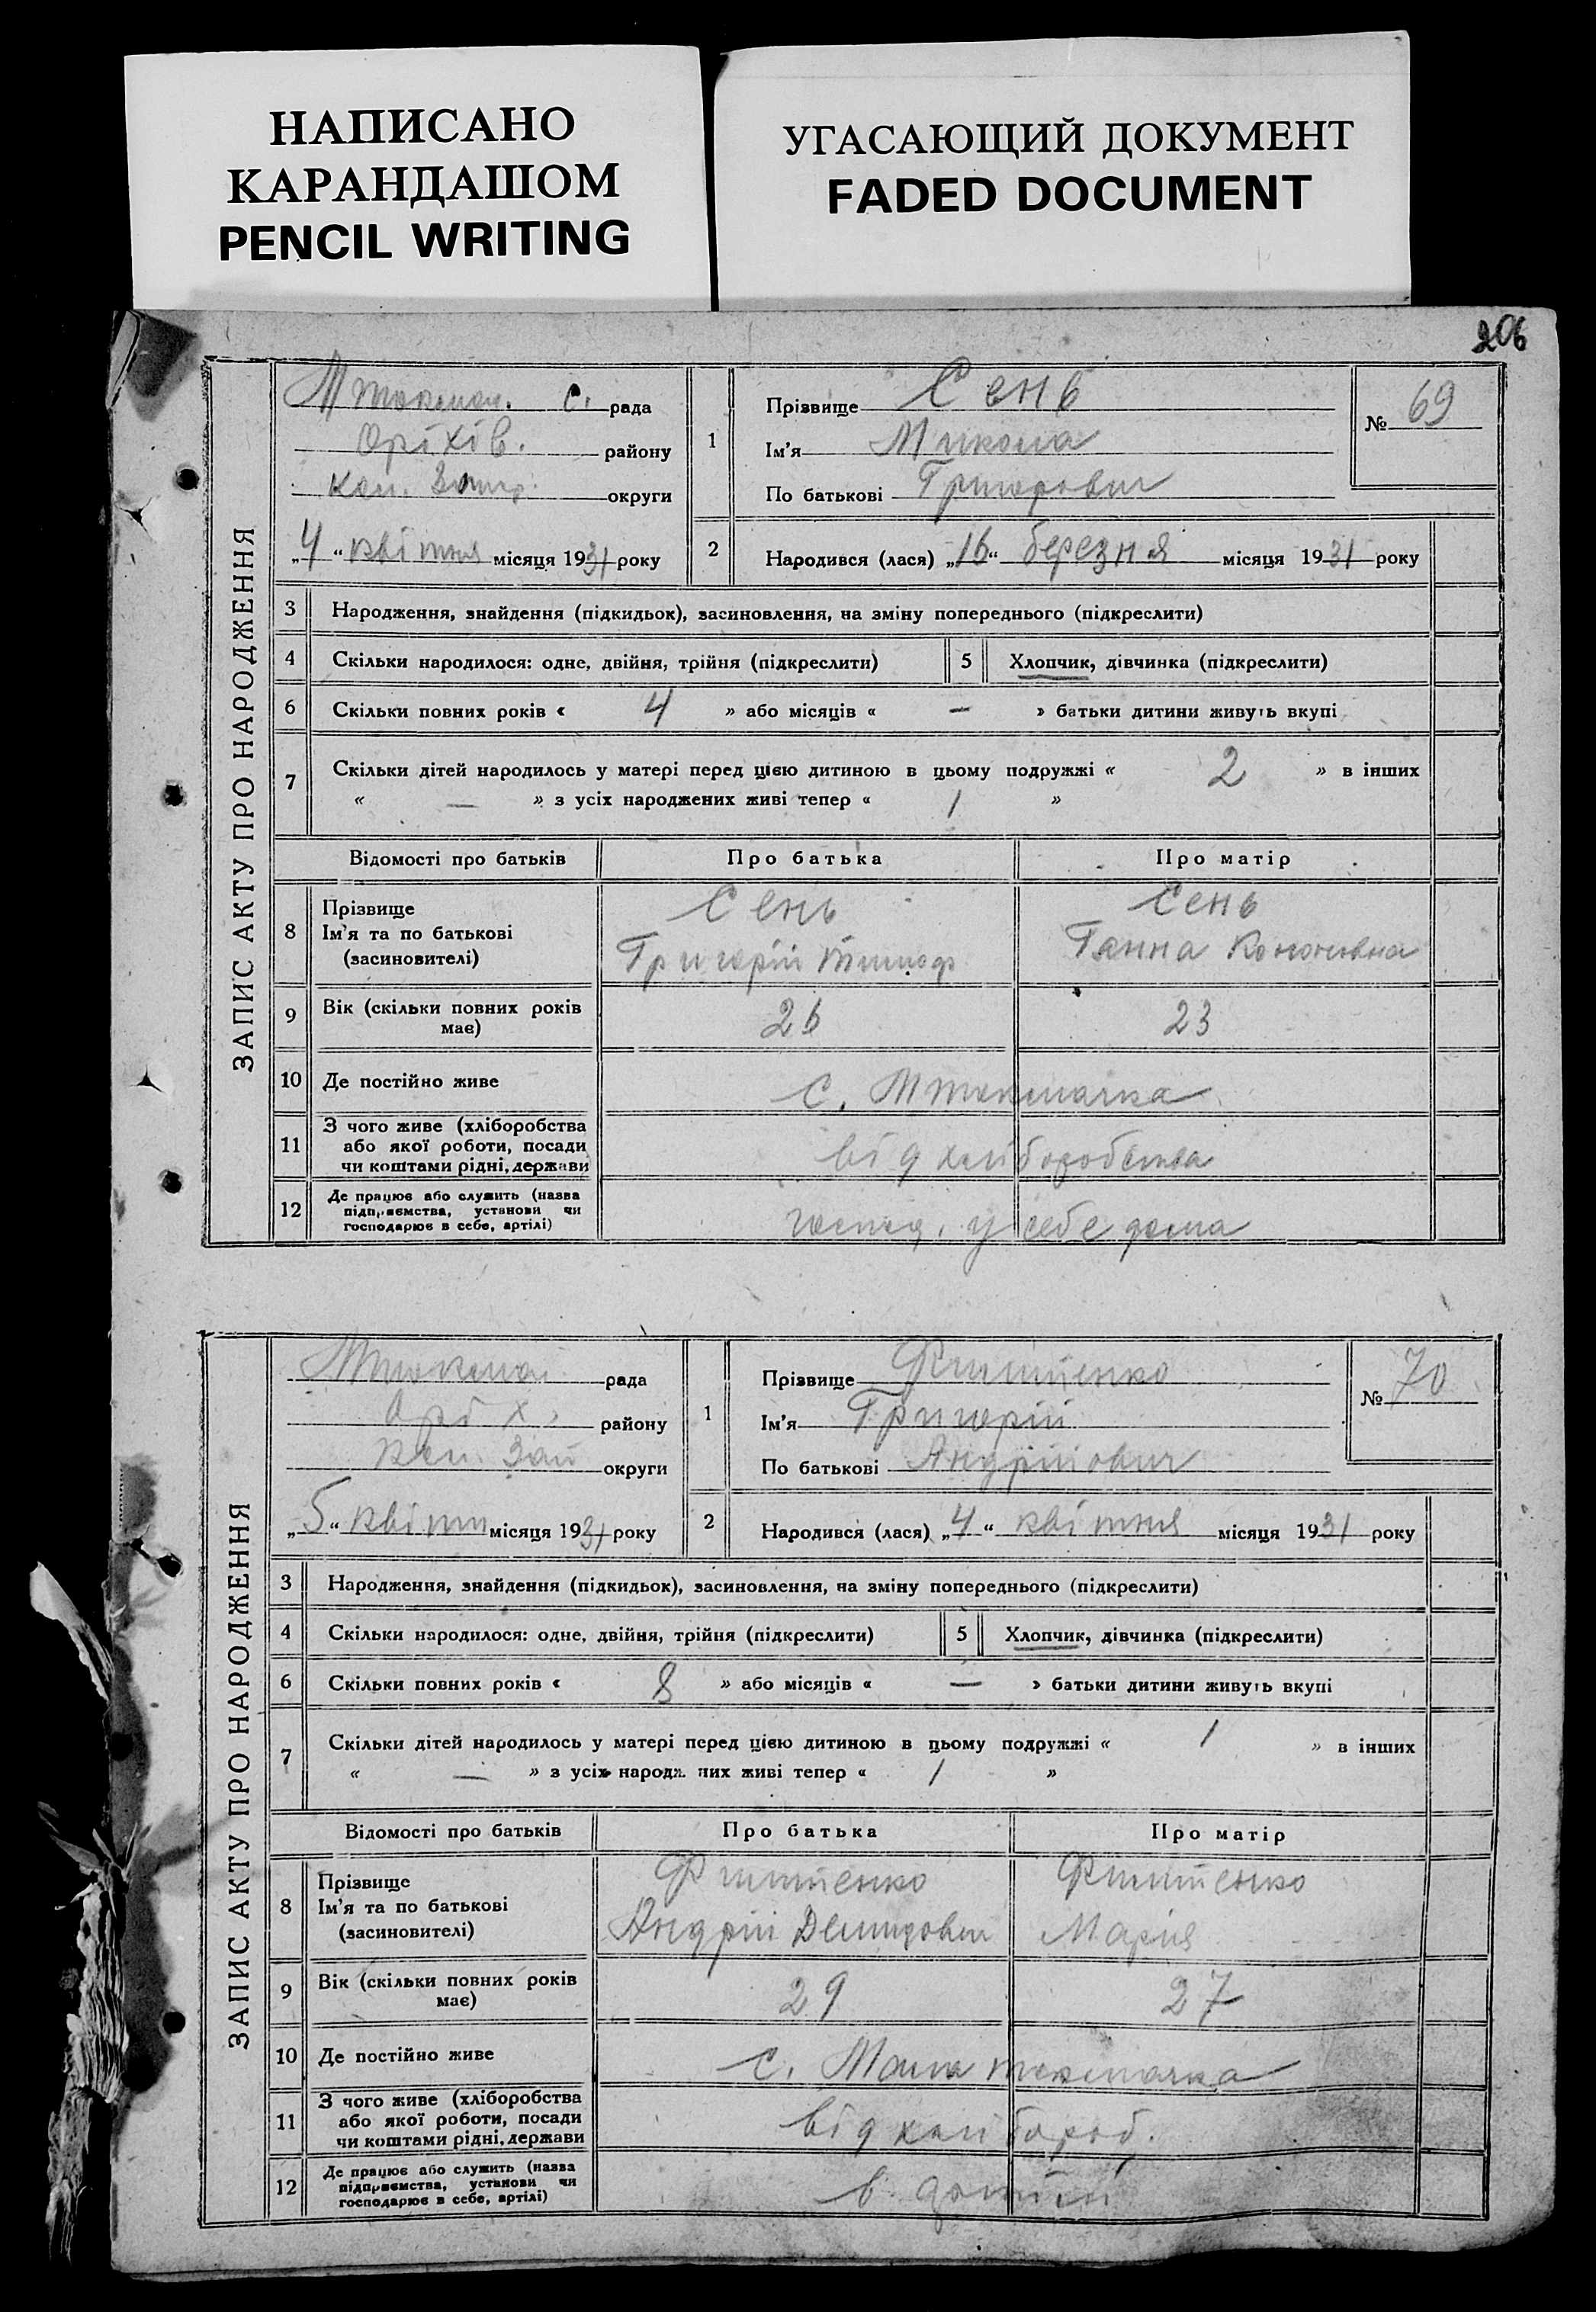 НАПИСАНО
КАРАНДАШОМ
PENCIL WRITING
УГАСАЮЩИЙ ДОКУМЕНТ
FADED DOCUMENT
206
ЗАПИС АКТУ ПРО НАРОДЖЕННЯ
М Токмач. С. рада
Оріхів. району
округи
„4“ квітня місяця 1931 року
1
Прізвище Сень
Ім'я Микола
По батькові Григорович
№ 69
2
Народився (лася) „16“ березня місяця 1931 року
3 Народження, знайдення (підкидьок), засиновлення, на зміну попереднього (підкреслити)
4 Скільки народилося: одне, двійня, трійня (підкреслити) 5 Хлопчик, дівчинка (підкреслити)
6 Скільки повних років « 4 » або місяців « — » батьки дитини живуть вкупі
7 Скільки дітей народилось у матері перед цією дитиною в цьому подружжі « 2 » в інших
« — » з усіх народжених живі тепер « 1 »
Відомості про батьків Про батька Про матір
8 Прізвище
Ім'я та по батькові
(засиновителі)
Сень
Григорій Тимоф
Сень
Ганна Кононівна
9 Вік (скільки повних років
має)
26 23
10 Де постійно живе с. М Токмачка
11 З чого живе (хліборобства
або якої роботи, посади
чи коштами рідні, держави
від хліборобства
12 Де працює або служить (назва
підприємства, установи чи
господарює в себе, артілі)
господ. у себе дома
ЗАПИС АКТУ ПРО НАРОДЖЕННЯ
М Токмач рада
Оріх. району
округи
„5“ квітн місяця 1931 року
1
Прізвище
Ім'я Григорій
По батькові Андрійович
№ 70
2
Народився (лася) „4“ квітня місяця 1931 року
3 Народження, знайдення (підкидьок), засиновлення, на зміну попереднього (підкреслити)
4 Скільки народилося: одне, двійня, трійня (підкреслити) 5 Хлопчик, дівчинка (підкреслити)
6 Скільки повних років « 8 » або місяців « — » батьки дитини живуть вкупі
7 Скільки дітей народилось у матері перед цією дитиною в цьому подружжі « 1 » в інших
« — » з усіх народжених живі тепер « 1 »
Відомості про батьків Про батька Про матір
8 Прізвище
Ім'я та по батькові
(засиновителі)
Андрій Демидович
Марія
9 Вік (скільки повних років
має)
29 27
10 Де постійно живе с. Мала Токмачка
11 З чого живе (хліборобства
або якої роботи, посади
чи коштами рідні, держави
від хлібороб.
12 Де працює або служить (назва
підприємства, установи чи
господарює в себе, артілі)